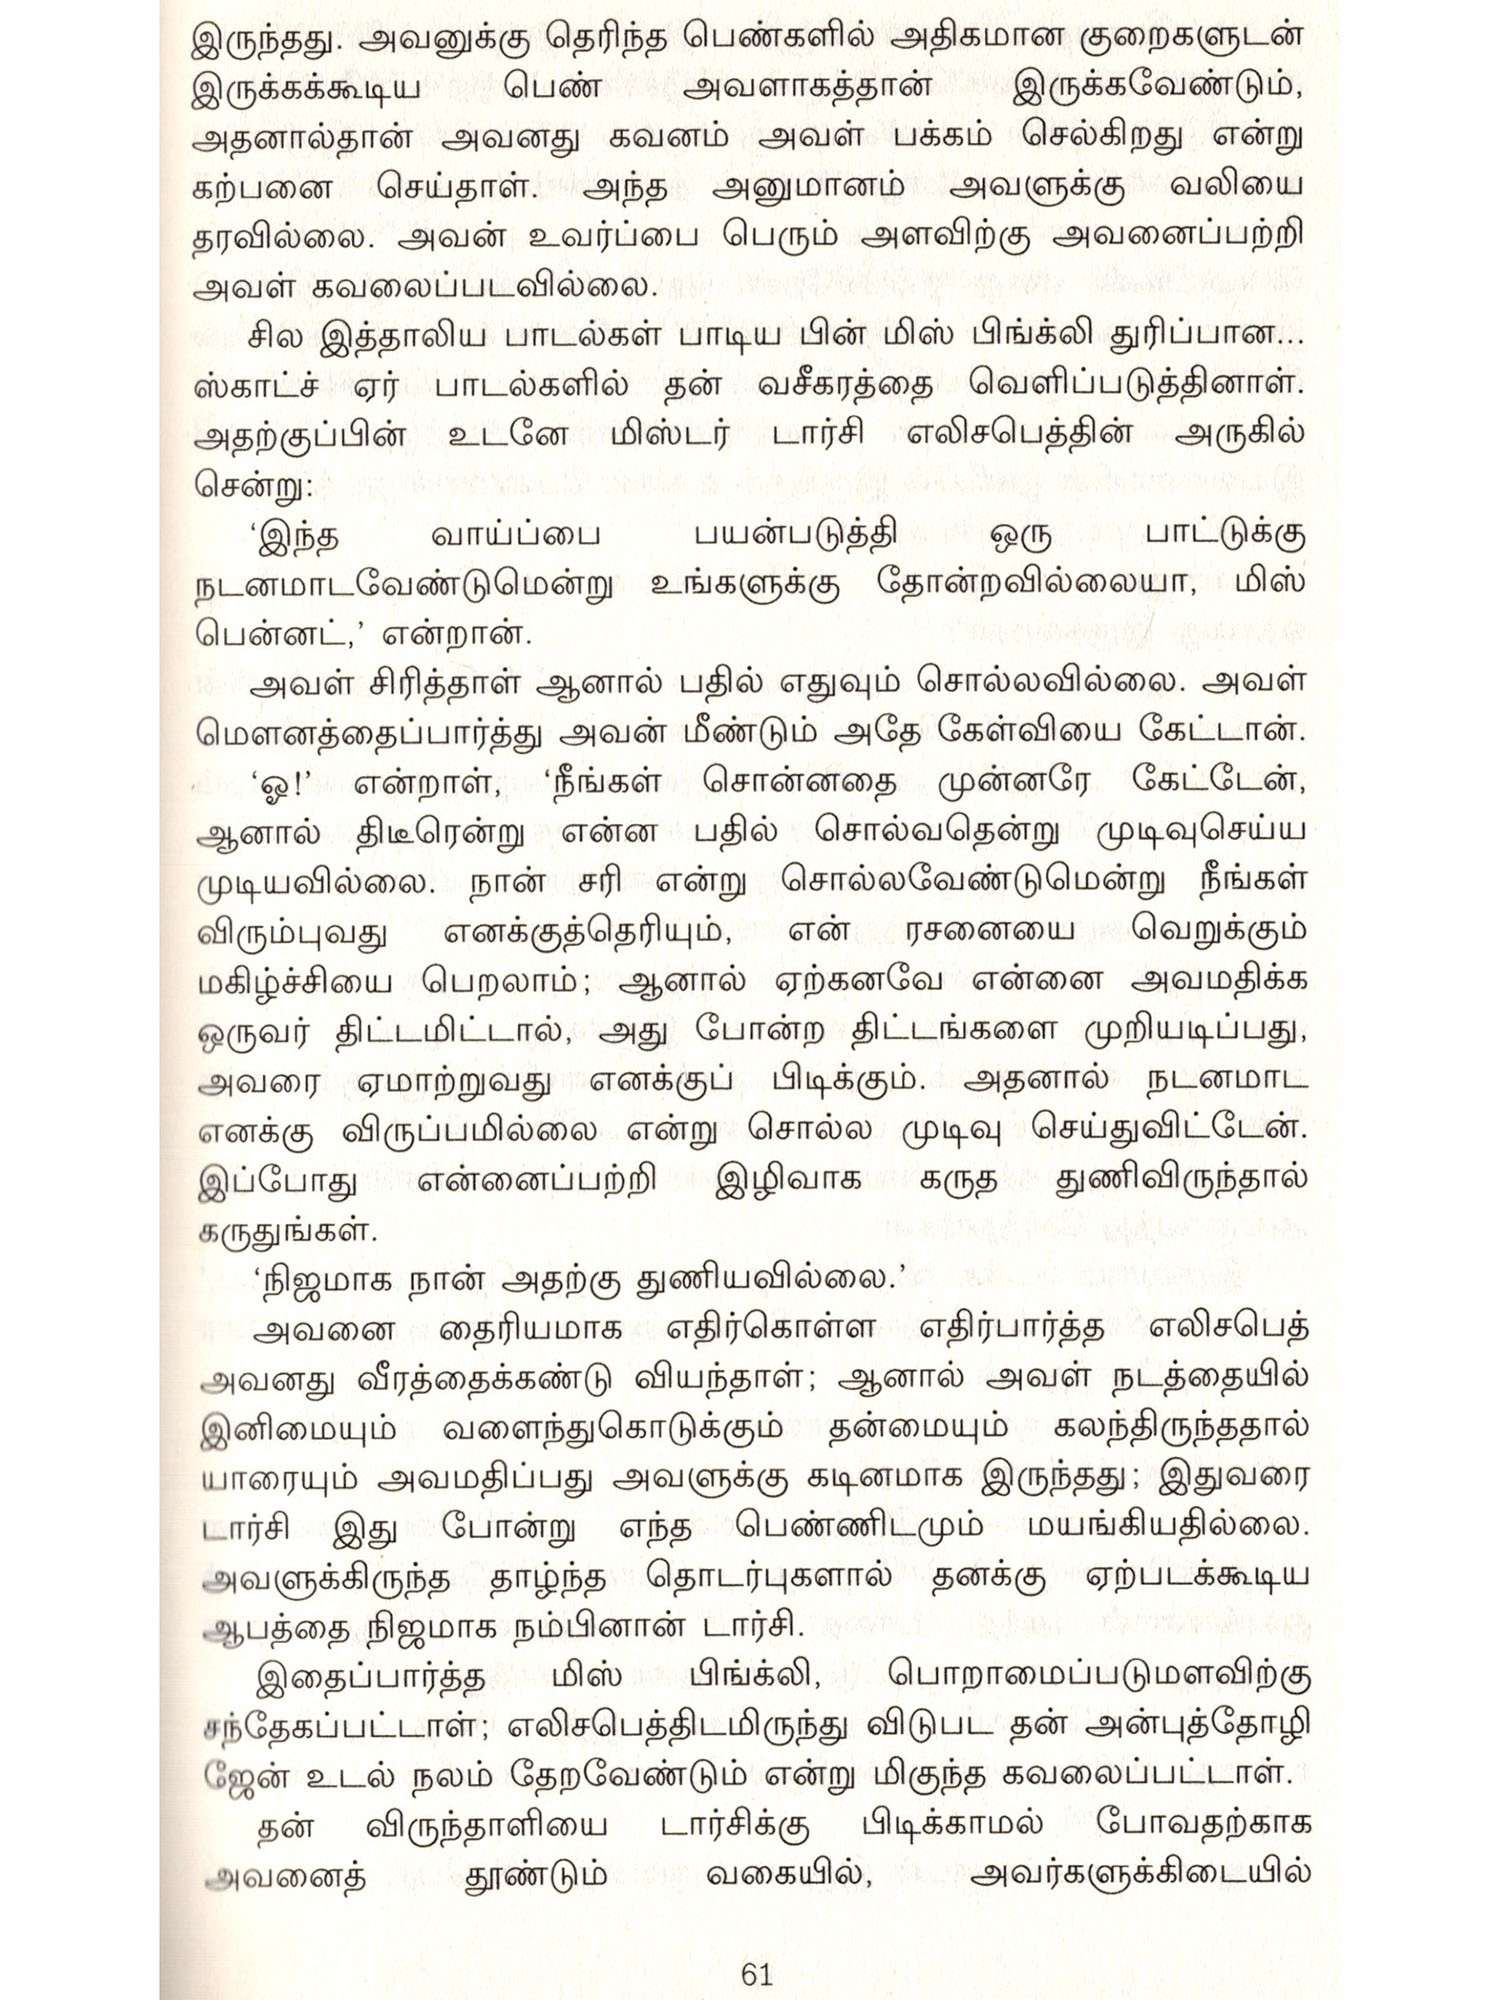 இருந்தது. அவனுக்கு தெரிந்த பெண்களில் அதிகமான குறைகளுடன்
இருக்கக்கூடிய பெண் அவளாகத்தான் இருக்கவேண்டும்,
அதனால்தான் அவனது கவனம் அவள் பக்கம் செல்கிறது என்று
கற்பனை செய்தாள். அந்த அனுமானம் அவளுக்கு வலியை
தரவில்லை. அவன் உவர்ப்பை பெரும் அளவிற்கு அவனைப்பற்றி
அவள் கவலைப்படவில்லை.
சில இத்தாலிய பாடல்கள் பாடிய பின் மிஸ் பிங்க்லி துரிப்பான...
ஸ்காட்ச் ஏர் பாடல்களில் தன் வசீகரத்தை வெளிப்படுத்தினாள்.
அதற்குப்பின் உடனே மிஸ்டர் டார்சி எலிசபெத்தின் அருகில்
சென்று:
‘இந்த வாய்ப்பை பயன்படுத்தி ஒரு பாட்டுக்கு
நடனமாடவேண்டுமென்று உங்களுக்கு தோன்றவில்லையா, மிஸ்
பென்னட்,’ என்றான்.
அவள் சிரித்தாள் ஆனால் பதில் எதுவும் சொல்லவில்லை. அவள்
மௌனத்தைப்பார்த்து அவன் மீண்டும் அதே கேள்வியை கேட்டான்.
‘ஓ!’ என்றாள், ‘நீங்கள் சொன்னதை முன்னரே கேட்டேன்,
ஆனால் திடீரென்று என்ன பதில் சொல்வதென்று முடிவுசெய்ய
முடியவில்லை. நான் சரி என்று சொல்லவேண்டுமென்று நீங்கள்
விரும்புவது எனக்குத்தெரியும், என் ரசனையை வெறுக்கும்
மகிழ்ச்சியை பெறலாம்; ஆனால் ஏற்கனவே என்னை அவமதிக்க
ஒருவர் திட்டமிட்டால், அது போன்ற திட்டங்களை முறியடிப்பது,
அவரை ஏமாற்றுவது எனக்குப் பிடிக்கும். அதனால் நடனமாட
எனக்கு விருப்பமில்லை என்று சொல்ல முடிவு செய்துவிட்டேன்.
இப்போது என்னைப்பற்றி இழிவாக கருத துணிவிருந்தால்
கருதுங்கள்.
‘நிஜமாக நான் அதற்கு துணியவில்லை.’
அவனை தைரியமாக எதிர்கொள்ள எதிர்பார்த்த எலிசபெத்
அவனது வீரத்தைக்கண்டு வியந்தாள்; ஆனால் அவள் நடத்தையில்
இனிமையும் வளைந்துகொடுக்கும் தன்மையும் கலந்திருந்ததால்
யாரையும் அவமதிப்பது அவளுக்கு கடினமாக இருந்தது; இதுவரை
டார்சி இது போன்று எந்த பெண்ணிடமும் மயங்கியதில்லை.
அவளுக்கிருந்த தாழ்ந்த தொடர்புகளால் தனக்கு ஏற்படக்கூடிய
ஆபத்தை நிஜமாக நம்பினான் டார்சி.
இதைப்பார்த்த மிஸ் பிங்க்லி, பொறாமைப்படுமளவிற்கு
சந்தேகப்பட்டாள்; எலிசபெத்திடமிருந்து விடுபட தன் அன்புத்தோழி
ஜேன் உடல் நலம் தேறவேண்டும் என்று மிகுந்த கவலைப்பட்டாள்.
தன் விருந்தாளியை டார்சிக்கு பிடிக்காமல் போவதற்காக
அவனைத் தூண்டும் வகையில், அவர்களுக்கிடையில்
61